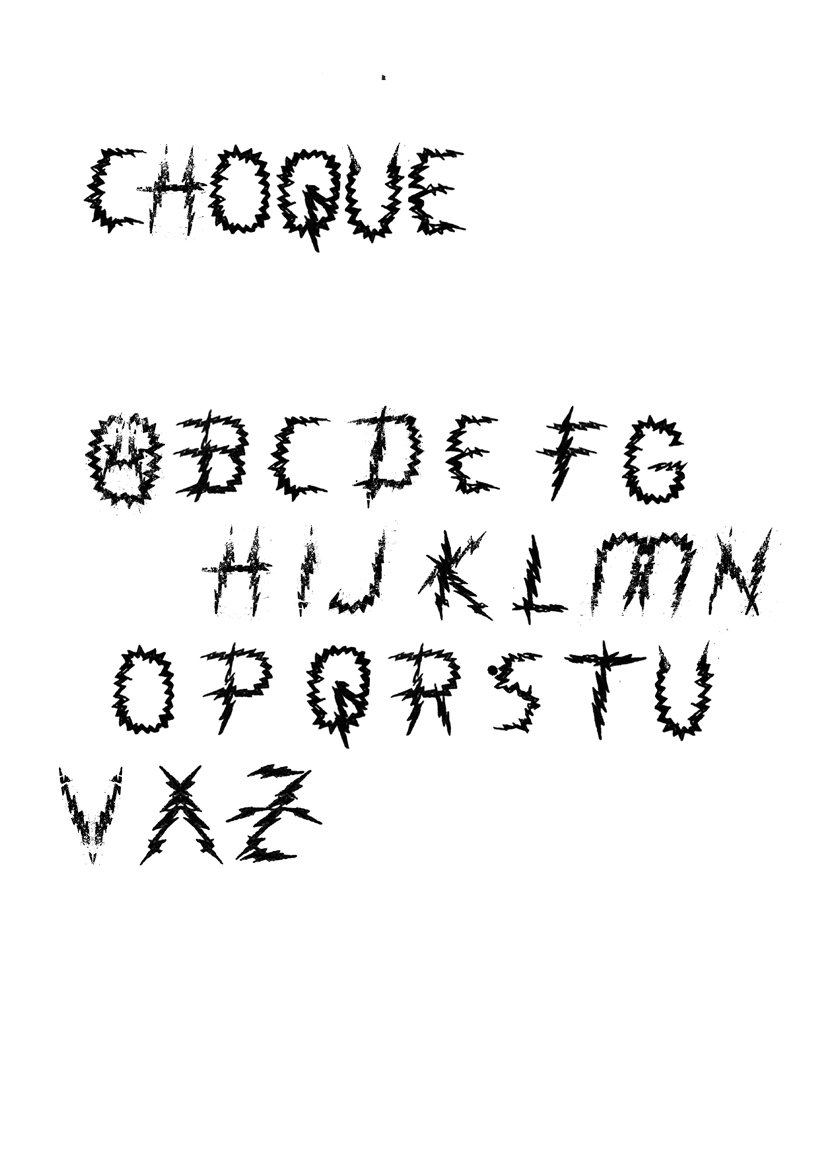 CHOQUE
ABCDEFG
HIJKLMN
OPQRSTU
VXZ